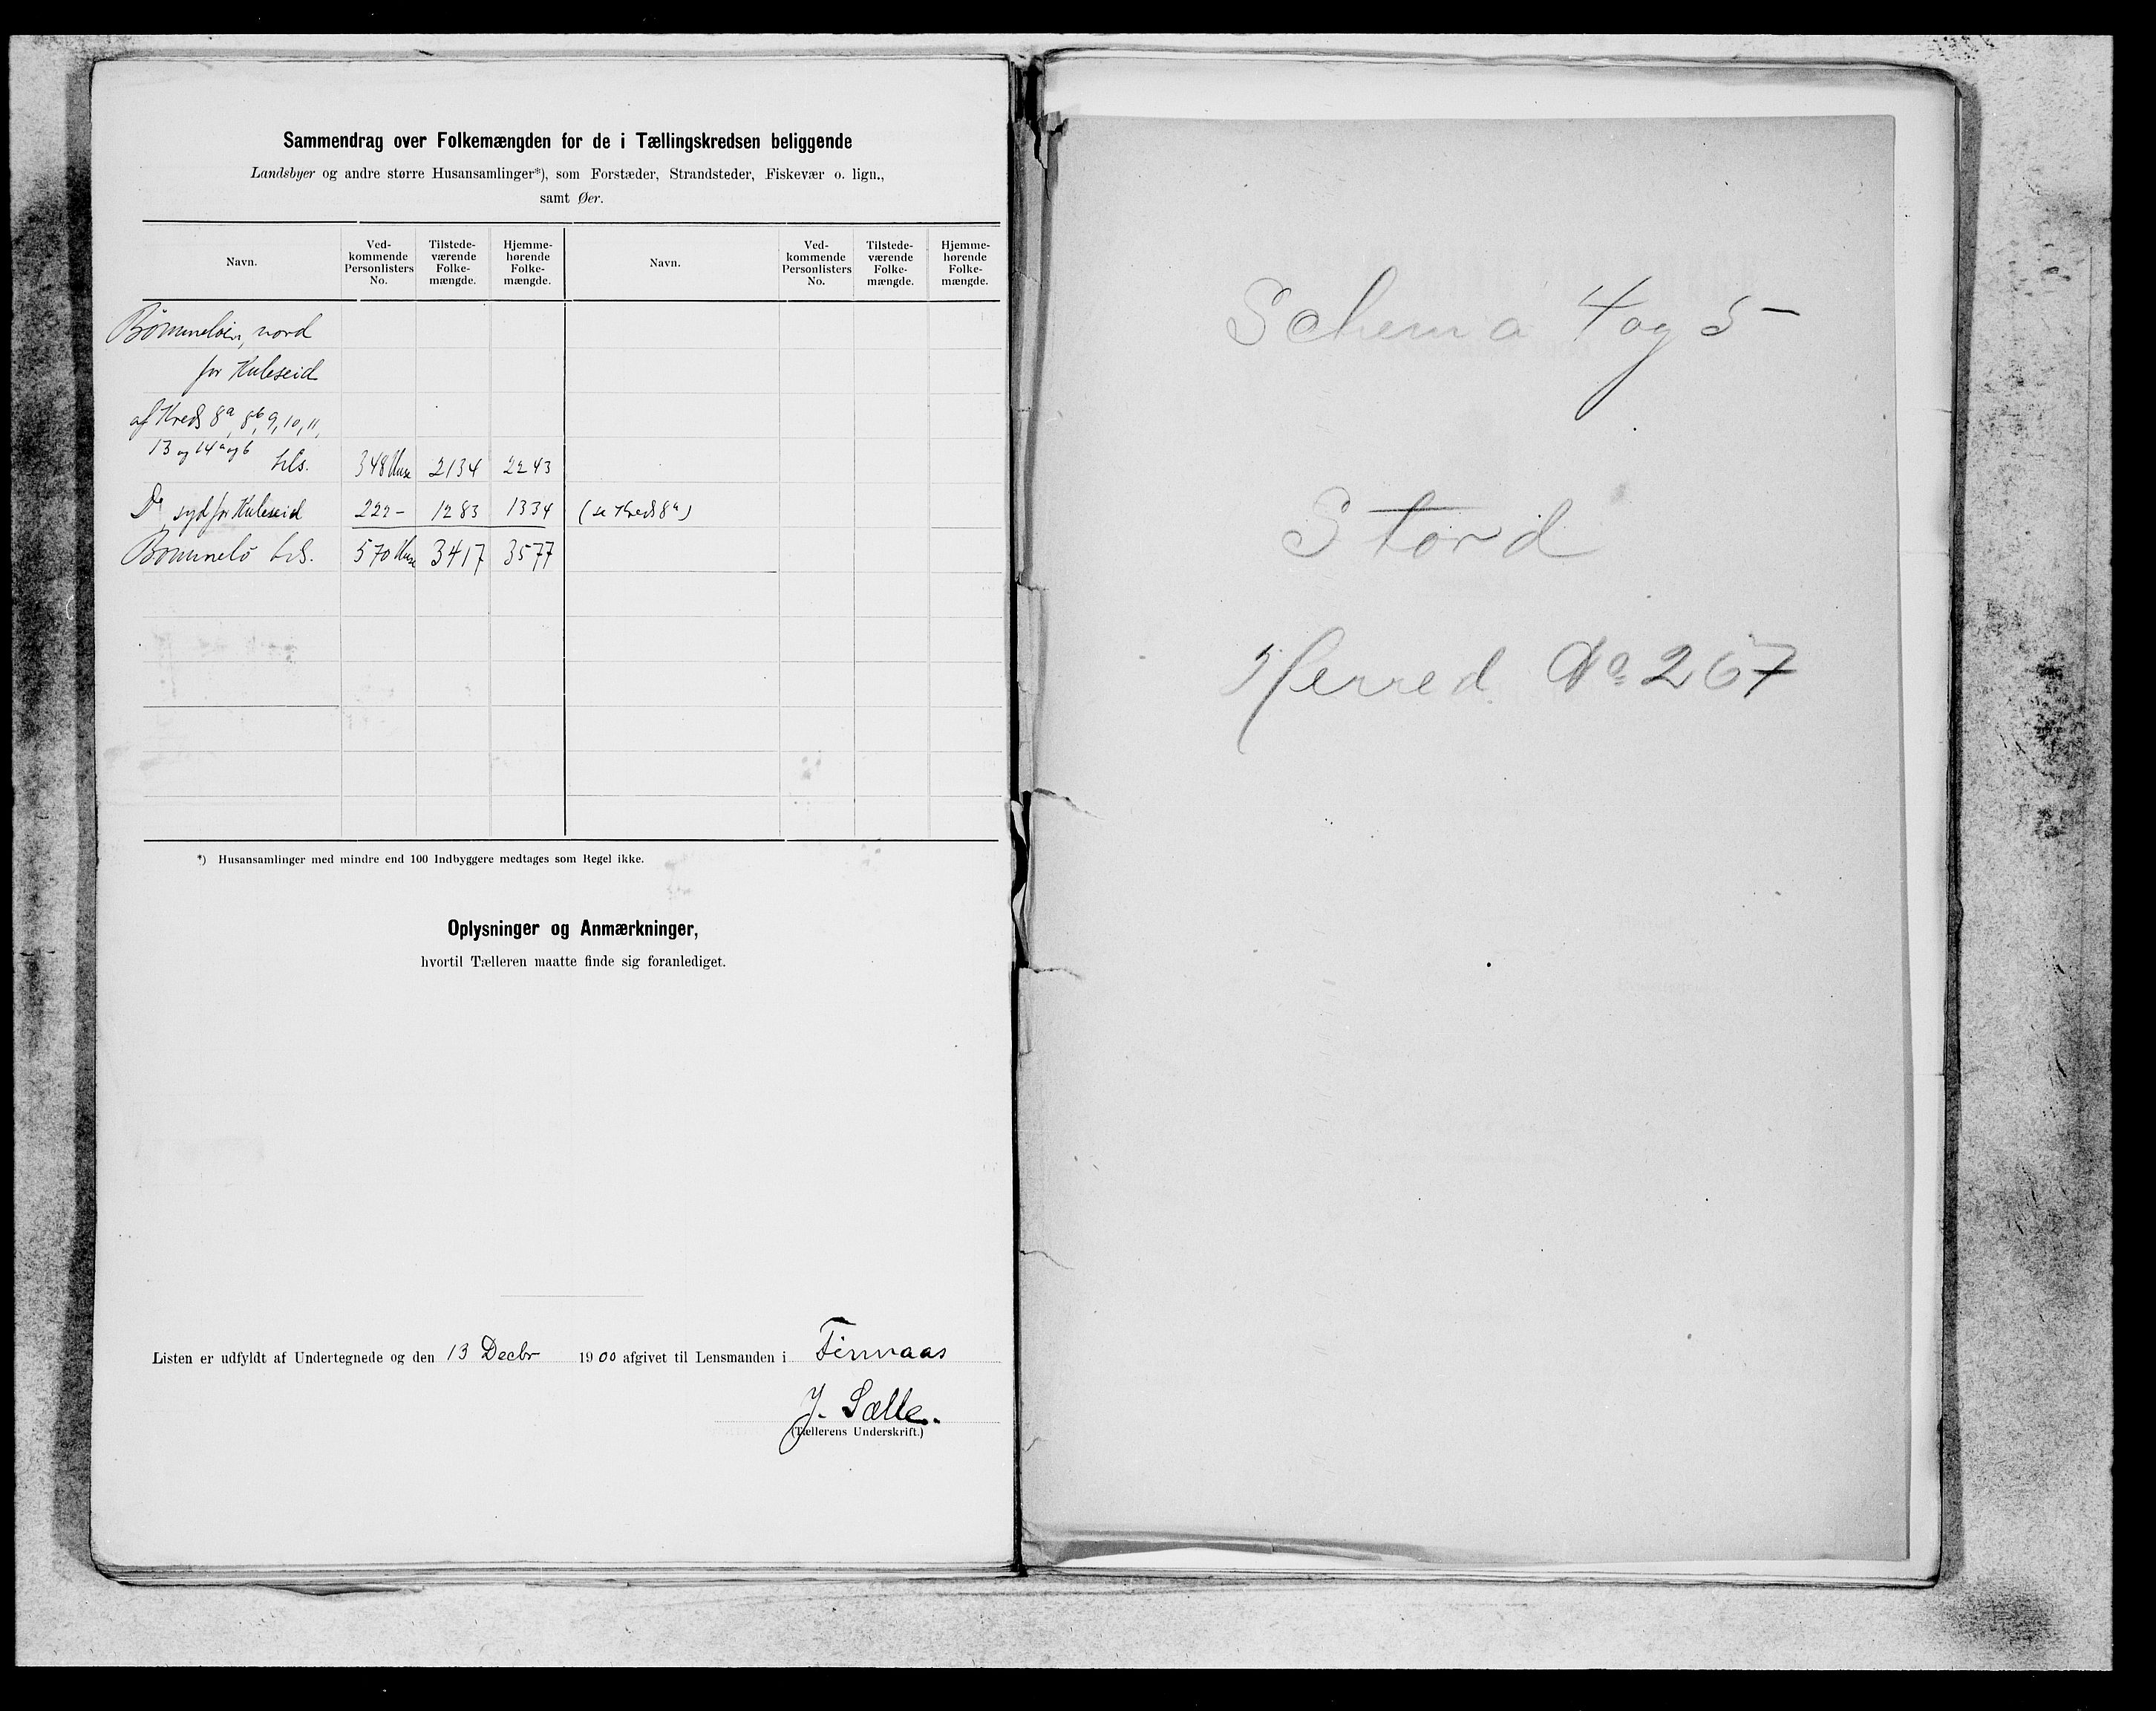 Sammendrag over Folkemængden for de i Tællingskredsen beliggende
Landsbyer og andre større Husansamlinger*), som Forstæder, Strandsteder, Fiskevær o. lign.,
samt Øer.
Navn. Ved-kommende Personlisters No. Tilstede-værende Folke-mængde. Hjemme-hørende Folke-mængde. Navn. Ved-kommende Personlisters No. Tilstede-værende Folke-mængde. Hjemme-hørende Folke-mængde.
Bömmeløen, nord
for Kuleseid
af Kreds 8a, 8b, 9, 10, 11,
13 og 14 a og b tils. 348 Huse 2134 2243
Do syd for Kuleseid 222 - 1283 1334 (se Kreds 8a)
Bömmelö tils. 570 Huse 3417 3577
*) Husansamlinger med mindre end 100 Indbyggere medtages som Regel ikke.
Oplysninger og Anmærkninger,
hvortil Tælleren maatte finde sig foranlediget.
Listen er udfyldt af Undertegnede og den 13 Decbr 1900 afgivet til Lensmanden i Finnaas
J. Sælle.
(Tællerens Underskrift.)
Schema 4 og 5
Stord
Herred No 267